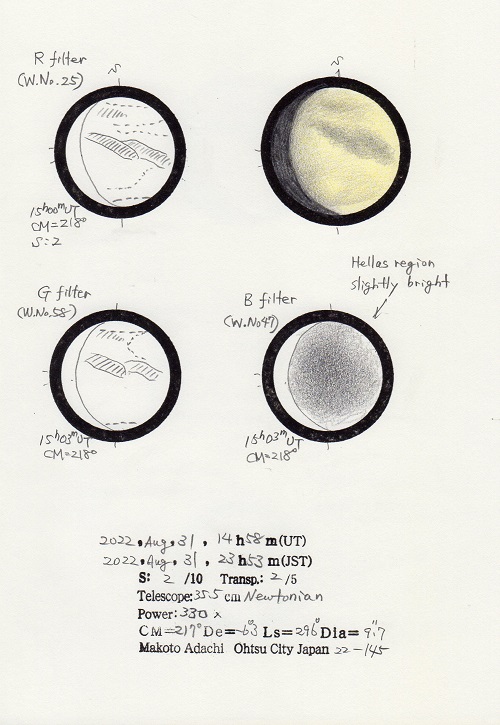 R filter
(W.No.25)
N
N
15h00mUT
CM=218°
S:2
Hellas region
slightly bright
G filter
(W.No.58)
B filter
(W.No47)
15h03mUT
CM=218°
15h03mUT
CM=218°
2022, Aug, 31, 14h58m(UT)
2022, Aug, 31, 23h53m(JST)
S: 2 /10 Transp.: 2 /5
Telescope: 35.5 cm Newtonian
Power: 330 x
CM=217° De=-6.°3 Ls=296° Dia= 9."7
Makoto Adachi Ohtsu City Japan 22-145